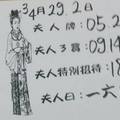 34月29.2日
夫人牌:05.2
夫人3賞:0914
夫人特别招待:18
夫人曰:一六